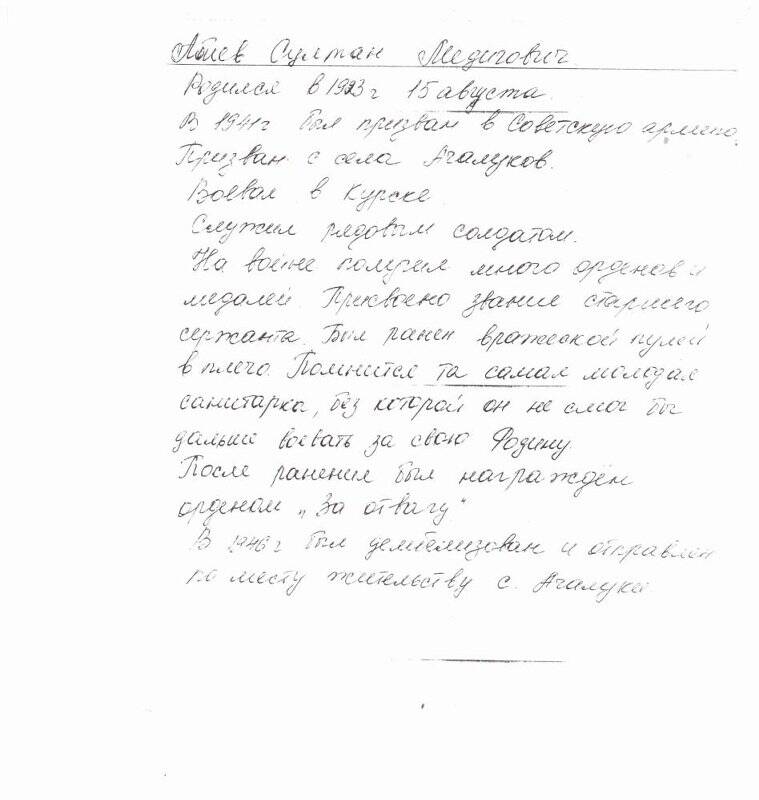 Абиев Султан Медигович
Родился в 1923 г 15 августа.
В 1941 г был призван в Советскую армию.
Призван с села Ачалуков.
Воевал в Курске
Служил рядовым солдатом.
На войне получил много орденов и
медалей. Присвоено звание старшего
сержанта. Был ранен вражеской пулей
в плечо. Помнится та самая молодая
санитарка, без которой он не смог бы
дальше воевать за свою Родину.
После ранения был награждён
орденом „За отвагу"
В 1946 г был дембелизован и отправлен
по месту жительству с. Ачалуки